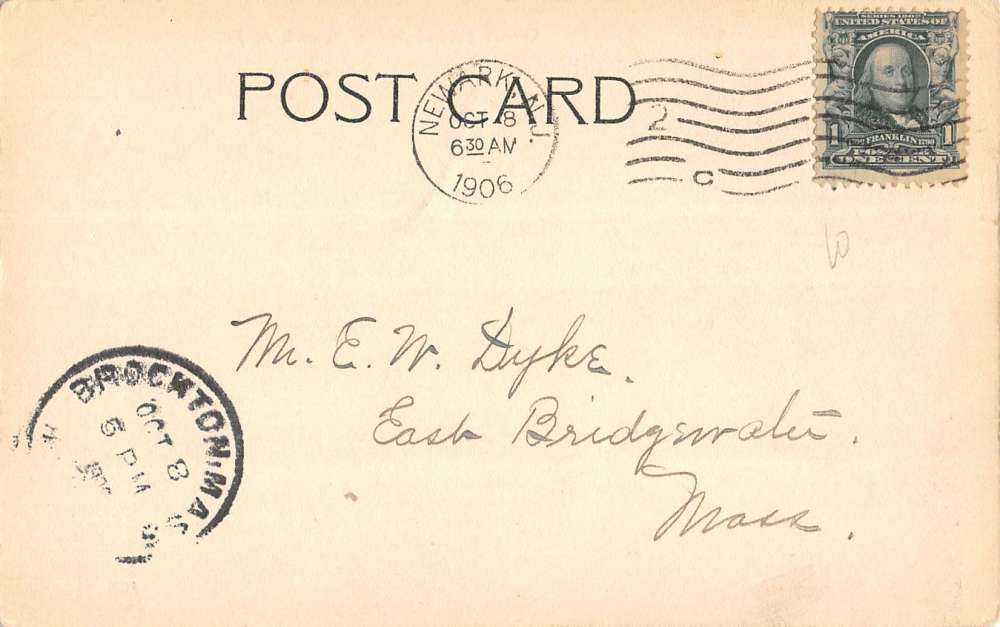 SERIES 1902
UNITED STATES OF
AMERICA
1 FRANKLIN 1790 1
ONE CENT
POST CARD
NEWARK, N.J.
OCT 8
6 30 AM
1906
2
C
10
Mr. E. W. Dyke.
East Bridgewater.
Mass.
BROCKTON, MASS
OCT 8
5 PM